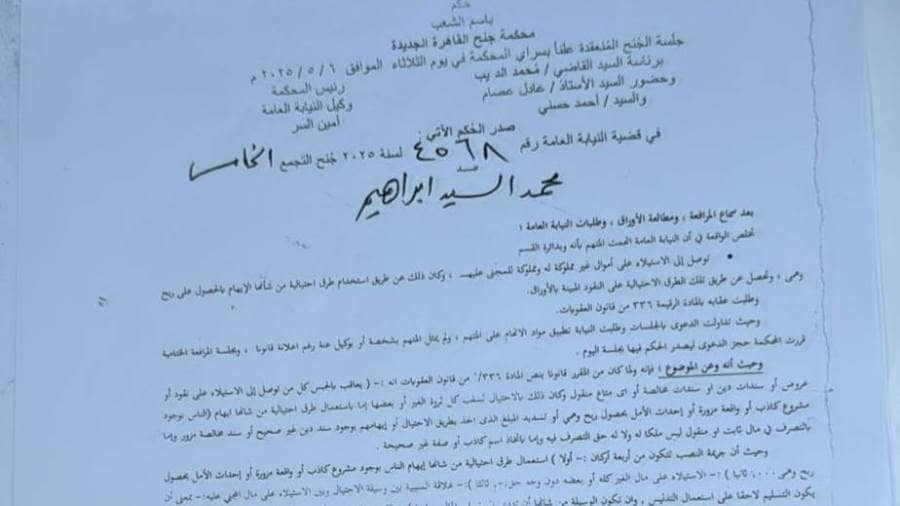 حكم
باسم الشعب
محكمة جنح القاهرة الجديدة
جلسة الجنح المنعقدة علناً بسراي المحكمة في يوم الثلاثاء الموافق ٢٠٢٥/٥/٦ م
برئاسة السيد القاضي / محمد الديب رئيس المحكمة
وحضور السيد الأستاذ / عادل عصام وكيل النيابة العامة
والسيد / أحمد حسني أمين السر
صدر الحكم الآتي
في قضية النيابة العامة رقم ٤٥٦٨ لسنة ٢٠٢٥ جنح التجمع الخامس
ضد
محمد السيد ابراهيم
بعد سماع المرافعة ، ومطالعة الأوراق ، وطلبات النيابة العامة :
تخلص الواقعة في أن النيابة العامة اتهمت المتهم بأنه وبدائرة القسم
• توصل إلى الاستيلاء على أموال غير مملوكة له ومملوكة للمجنى عليهـ ، وكان ذلك عن طريق استخدام طرق احتيالية من شأنها الإيهام بالحصول على ربح
وهمى ، وتحصل عن طريق تلك الطرق الاحتيالية على النقود المبينة بالأوراق.
وطلبت عقابه بالمادة الرقيمة ٣٣٦ من قانون العقوبات.
وحيث تداولت الدعوى بالجلسات وطلبت النيابة تطبيق مواد الاتهام على المتهم ، ولم يمثل المتهم بشخصة أو بوكيل عنة رغم اعلانة قانونا ، وبجلسة المرافعة الختامية
قررت المحكمة حجز الدعوى ليصدر الحكم فيها بجلسة اليوم .
وحيث أنه وعن الموضوع : فإنه ولما كان من المقرر قانونا بنص المادة ٣٣٦/ من قانون العقوبات انه :- ( يعاقب بالحبس كل من توصل إلى الاستيلاء على نقود أو
عروض أو سندات دين او سندات مخالصة أو اى متاع منقول وكان ذلك بالاحتيال لسلب كل ثروة الغير أو بعضها إما باستعمال طرق احتيالية من شانها ايهام الناس بوجود
مشروع كاذب أو واقعة مزورة أو إحداث الأمل بحصول ربح وهمي أو تسديد المبلغ الذى اخذ بطريق الاحتيال أو إيهامهم بوجود سند دين غير صحيح أو سند مخالصة مزور وإما
بالتصرف في مال ثابت او منقول ليس ملكا له ولا له حق التصرف فيه وإما باتخاذ اسم كاذب أو صفة غير صحيحة .
وحيث أن جريمة النصب تتكون من أربعة أركان :- أولا ) استعمال طرق احتيالية من شانها إيهام الناس بوجود مشروع كاذب أو واقعة مزورة أو إحداث الأمل بحصول
ربح وهمى .... ثانيا ) :- الاستيلاء على مال الغير كله أو بعضه دون وجه حق .- ثالثا ) :- علاقة السببية بين وسيلة الاحتيال وبين الاستيلاء على مال المجني عليه :- بمعنى أن
يكون التسليم لاحقا على استعمال التدليس ، وان تكون الوسيلة من شانها